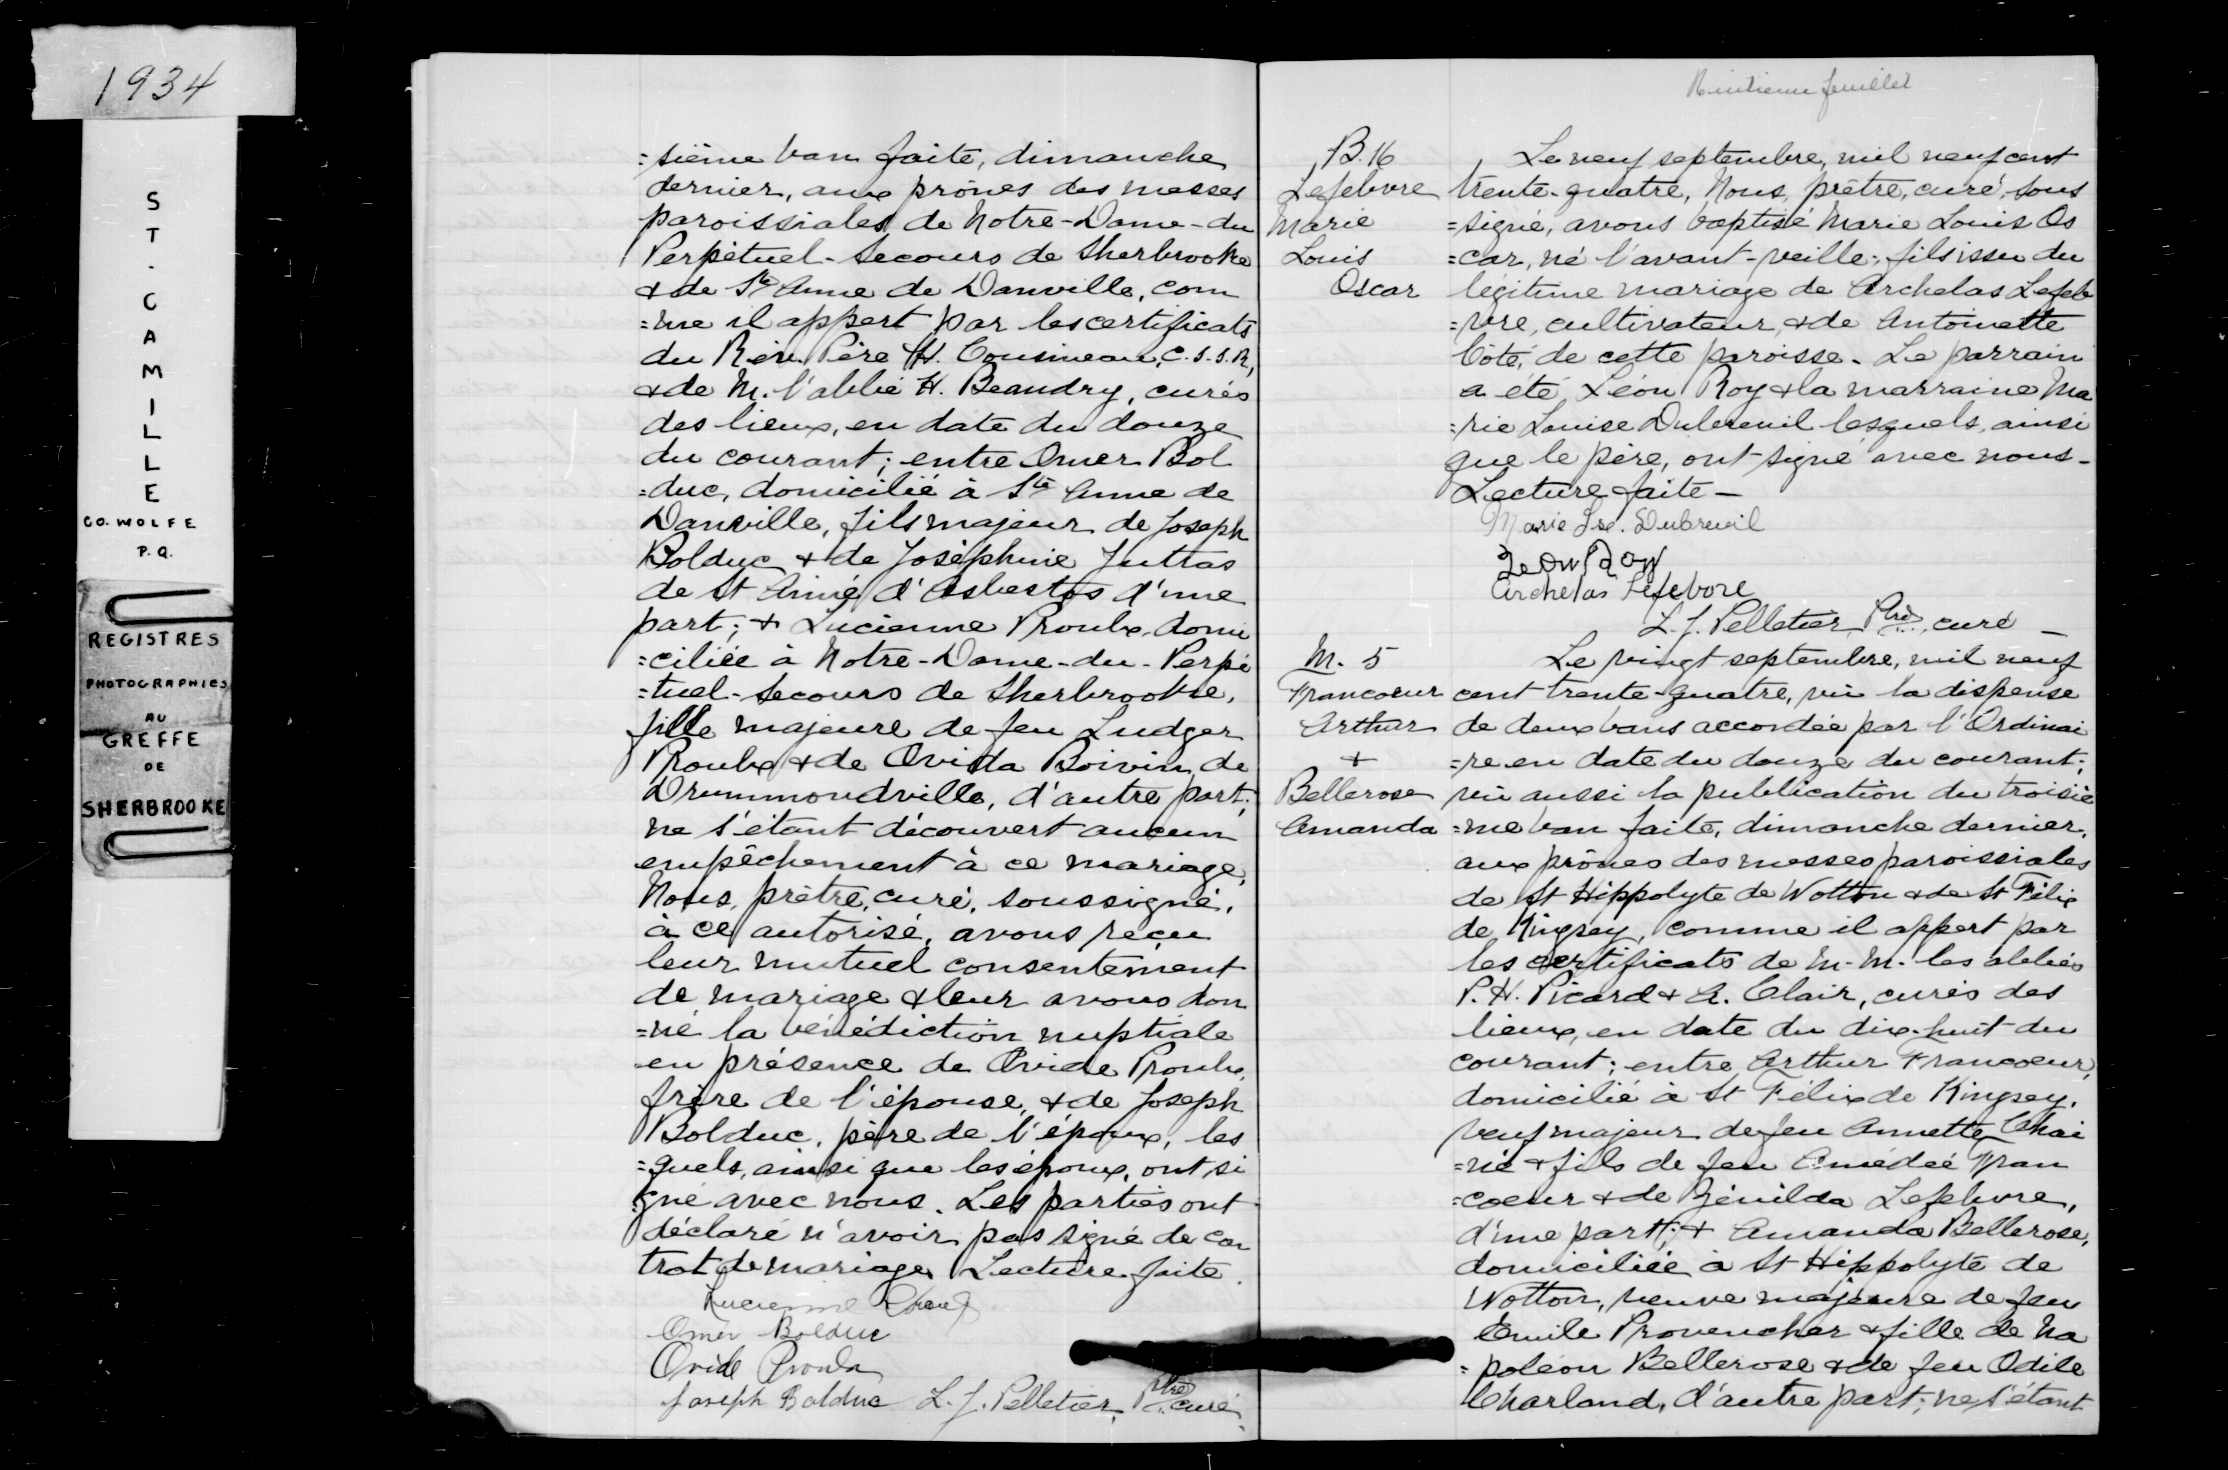 1934
ST. CAMILLE
CO. WOLFE
P.Q.
REGISTRES
PHOTOGRAPHIES
AU
GREFFE
DE
SHERBROOKE
=sième ban faite, dimanche
dernier, aux prônes des messes
paroissiales de Notre-Dame-du
Perpétuel-Secours de Sherbrooke
& de Ste Anne de Danville, com
=me il appert par les certificats
du Rév. Père H. Cousineau, C.S.S.R,
& de M. l'abbé H. Beaudry, curés
des lieux, en date du douze
du courant; entre Omer Bol
=duc, domicilié à Ste Anne de
Danville, fils majeur de Joseph
Bolduc & de Joséphine Jutras
de St Aimé d'Asbestos d'une
part; & Lucienne Proulx, domi
=ciliée à Notre-Dame-du-Perpé
=tuel-Secours de Sherbrooke,
fille majeure de feu Ludger
Proulx & de Ovida Boivin de
Drummondville, d'autre part;
ne s'étant découvert aucun
empêchement à ce mariage,
Nous, prêtre, curé, soussigné,
à ce autorisé, avons reçu
leur mutuel consentement
de mariage & leur avons don
=né la bénédiction nuptiale
en présence de Ovide Proulx,
frère de l'épouse, & de Joseph
Bolduc, père de l'époux, les
=quels, ainsi que les époux, ont si
gné avec nous. Les parties ont
déclaré n'avoir pas signé de con
trat de mariage. Lecture faite.
Lucienne Proulx
Omer Bolduc
Ovide Proulx
Joseph Bolduc L. J. Pelletier, Ptre curé.
Huitième feuillet
B. 16
Lefebvre
Marie
Louis
Oscar
Le neuf septembre, mil neuf cent
trente-quatre, Nous, prêtre, curé, sous
=signé, avons baptisé Marie Louis Os
=car, né l'avant-veille, fils issu du
légitime mariage de Archelas Lefeb
=vre, cultivateur, & de Antoinette
Côté, de cette paroisse. Le parrain
a été Léon Roy & la marraine Ma
=rie Louise Dubreuil lesquels, ainsi
que le père, ont signé avec nous.
Lecture faite —
Marie Lse. Dubreuil
Leon Roy
Archelas Lefebvre
L. J. Pelletier, Ptre, curé —
M. 5
Francoeur
Arthur
+
Bellerose
Amanda
Le vingt septembre, mil neuf
cent trente-quatre, vu la dispense
de deux bans accordée par l'Ordinai
=re en date du douze du courant;
vu aussi la publication du troisiè
=me ban faite, dimanche dernier,
aux prônes des messes paroissiales
de St Hippolyte de Wotton & de St Félix
de Kingsey, comme il appert par
les certificats de M.M. les abbés
P. H. Picard & A. Clair, curés des
lieux, en date du dix-huit du
courant; entre Arthur Francoeur,
domicilié à St Félix de Kingsey,
veuf majeur de feu Annette Chai
=né & fils de feu Amédée Fran
=coeur & de Zénilda Lefebvre,
d'une part; & Amanda Bellerose,
domiciliée à St Hippolyte de
Wotton, veuve majeure de feu
Emile Provencher & fille de Na
=poléon Bellerose & de feu Odile
Charland, d'autre part; ne s'étant